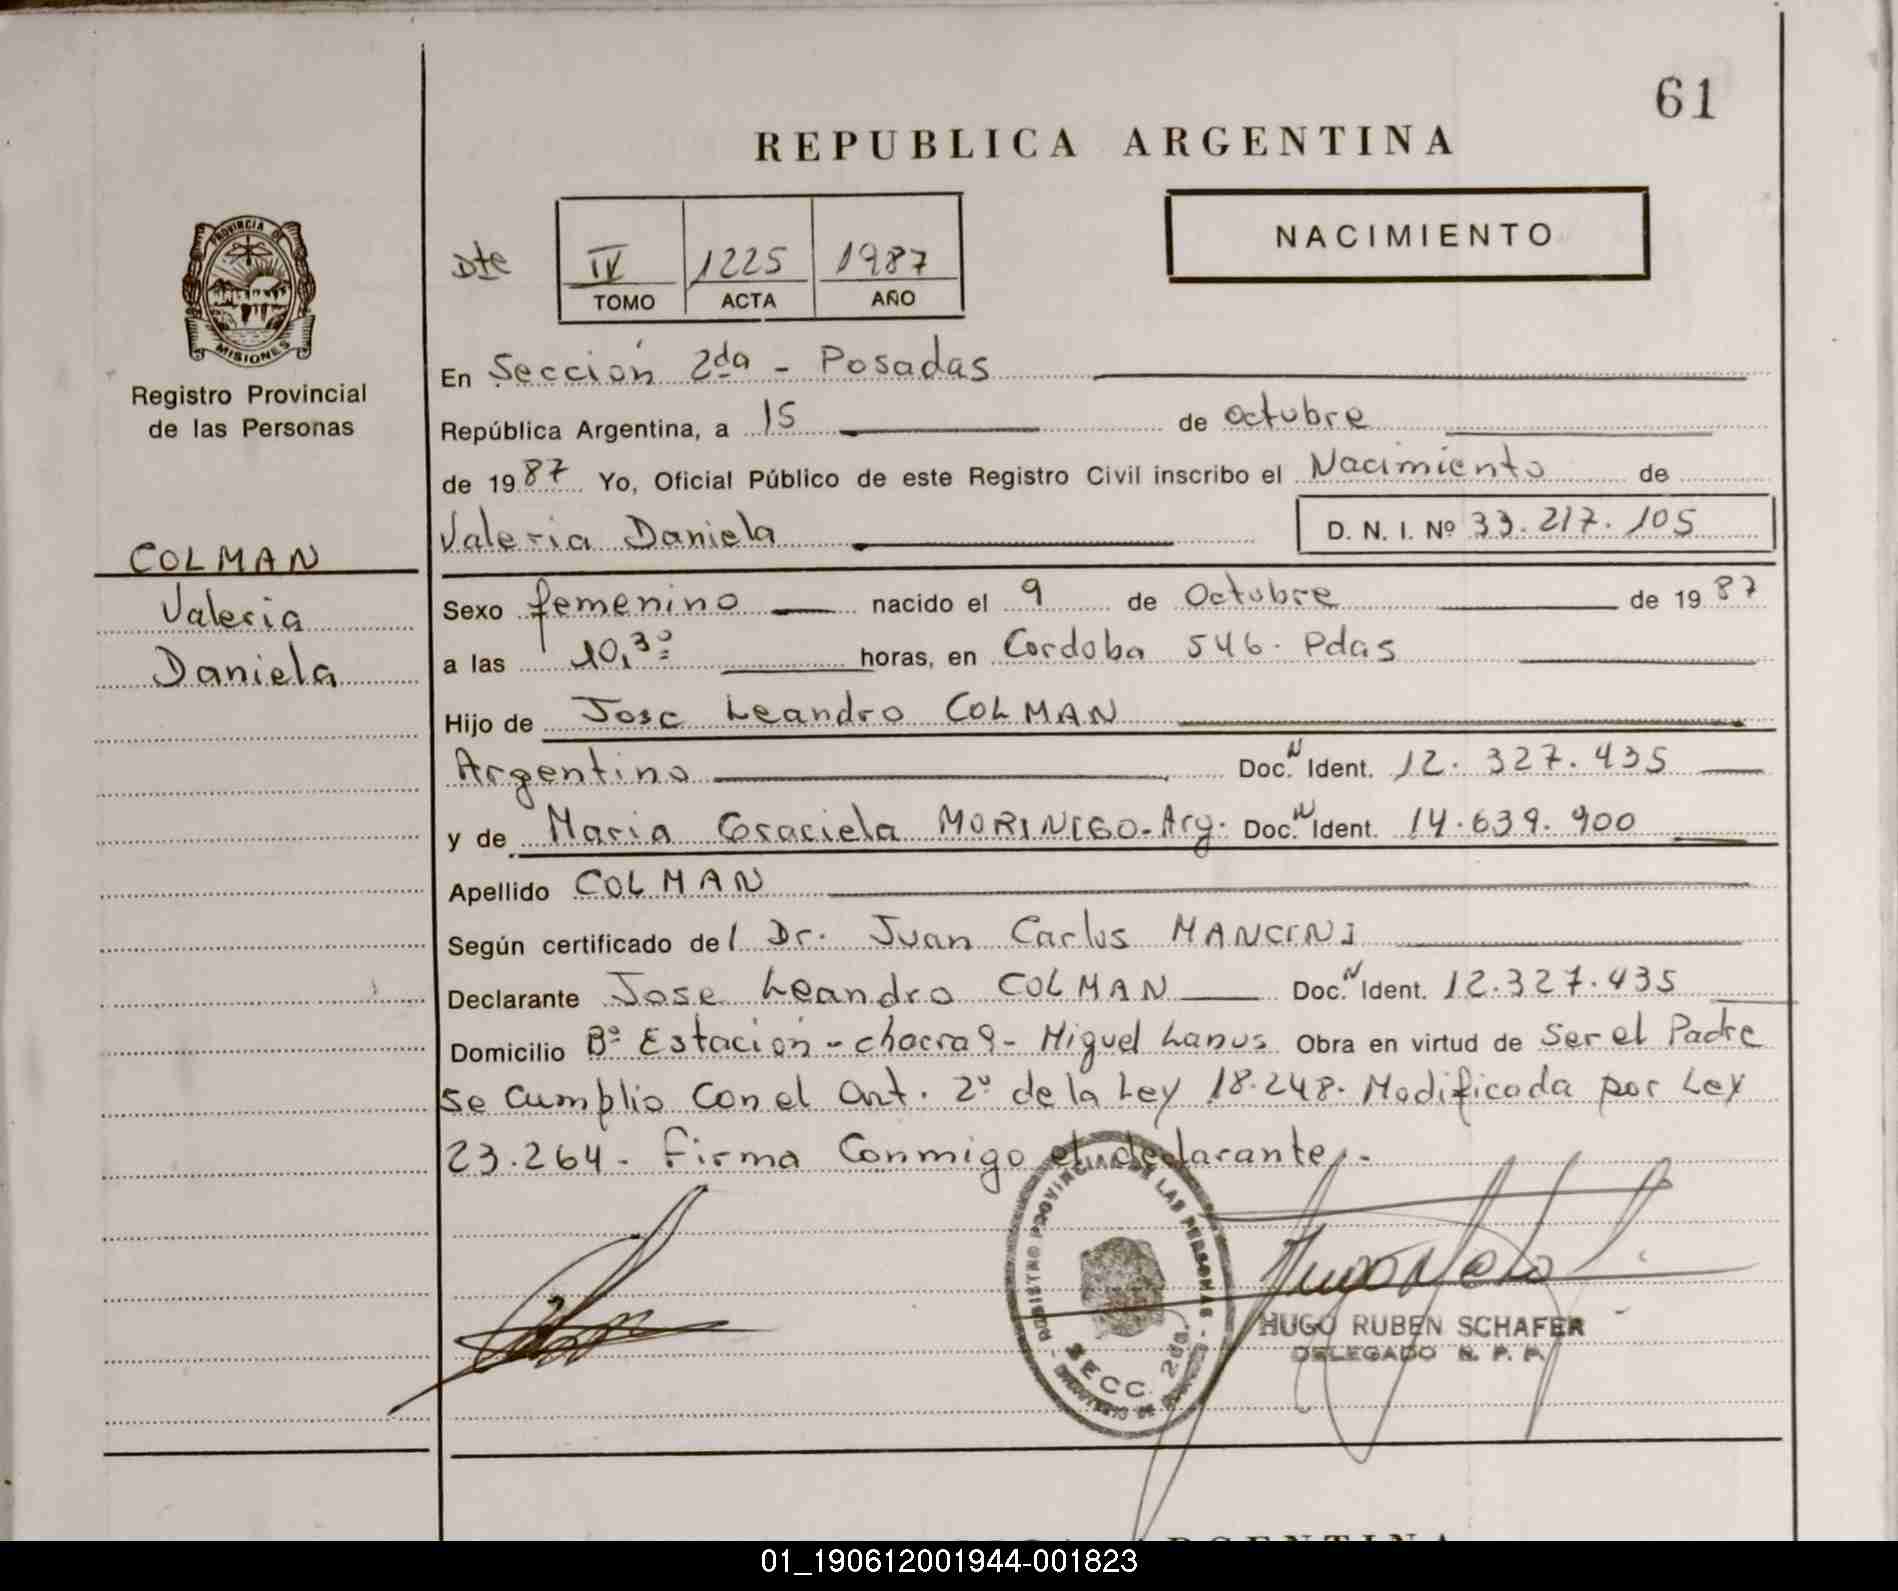 61
REPUBLICA ARGENTINA
Dte
IV 1225 1987
TOMO ACTA AÑO
NACIMIENTO
PROVINCIA DE
MISIONES
Registro Provincial
de las Personas
COLMAN
Valeria
Daniela
En Sección 2da - Posadas
República Argentina, a 15 de octubre
de 1987 Yo, Oficial Público de este Registro Civil inscribo el Nacimiento de
Valeria Daniela D. N. I. Nº 33.217.105
Sexo femenino nacido el 9 de Octubre de 1987
a las 10,30 horas, en Cordoba 546. Pdas
Hijo de Jose Leandro COLMAN
Argentino Doc. N Ident. 12.327.435
y de Maria Graciela MORINIGO - Arg. Doc. N Ident. 14.639.900
Apellido COLMAN
Según certificado del Dr. Juan Carlos MANCINI
Declarante Jose Leandro COLMAN Doc. N Ident. 12.327.435
Domicilio Bº Estación - chacra 9 - Miguel Lanus Obra en virtud de Ser el Padre
se cumplio con el Art. 2º de la Ley 18.248. Modificada por Ley
23.264 - firma conmigo el declarante.-
REGISTRO PROVINCIAL DE LAS PERSONAS
SECC. 2da.
HUGO RUBEN SCHAFER
DELEGADO R. P. P.
ARGENTINA
01_190612001944-001823